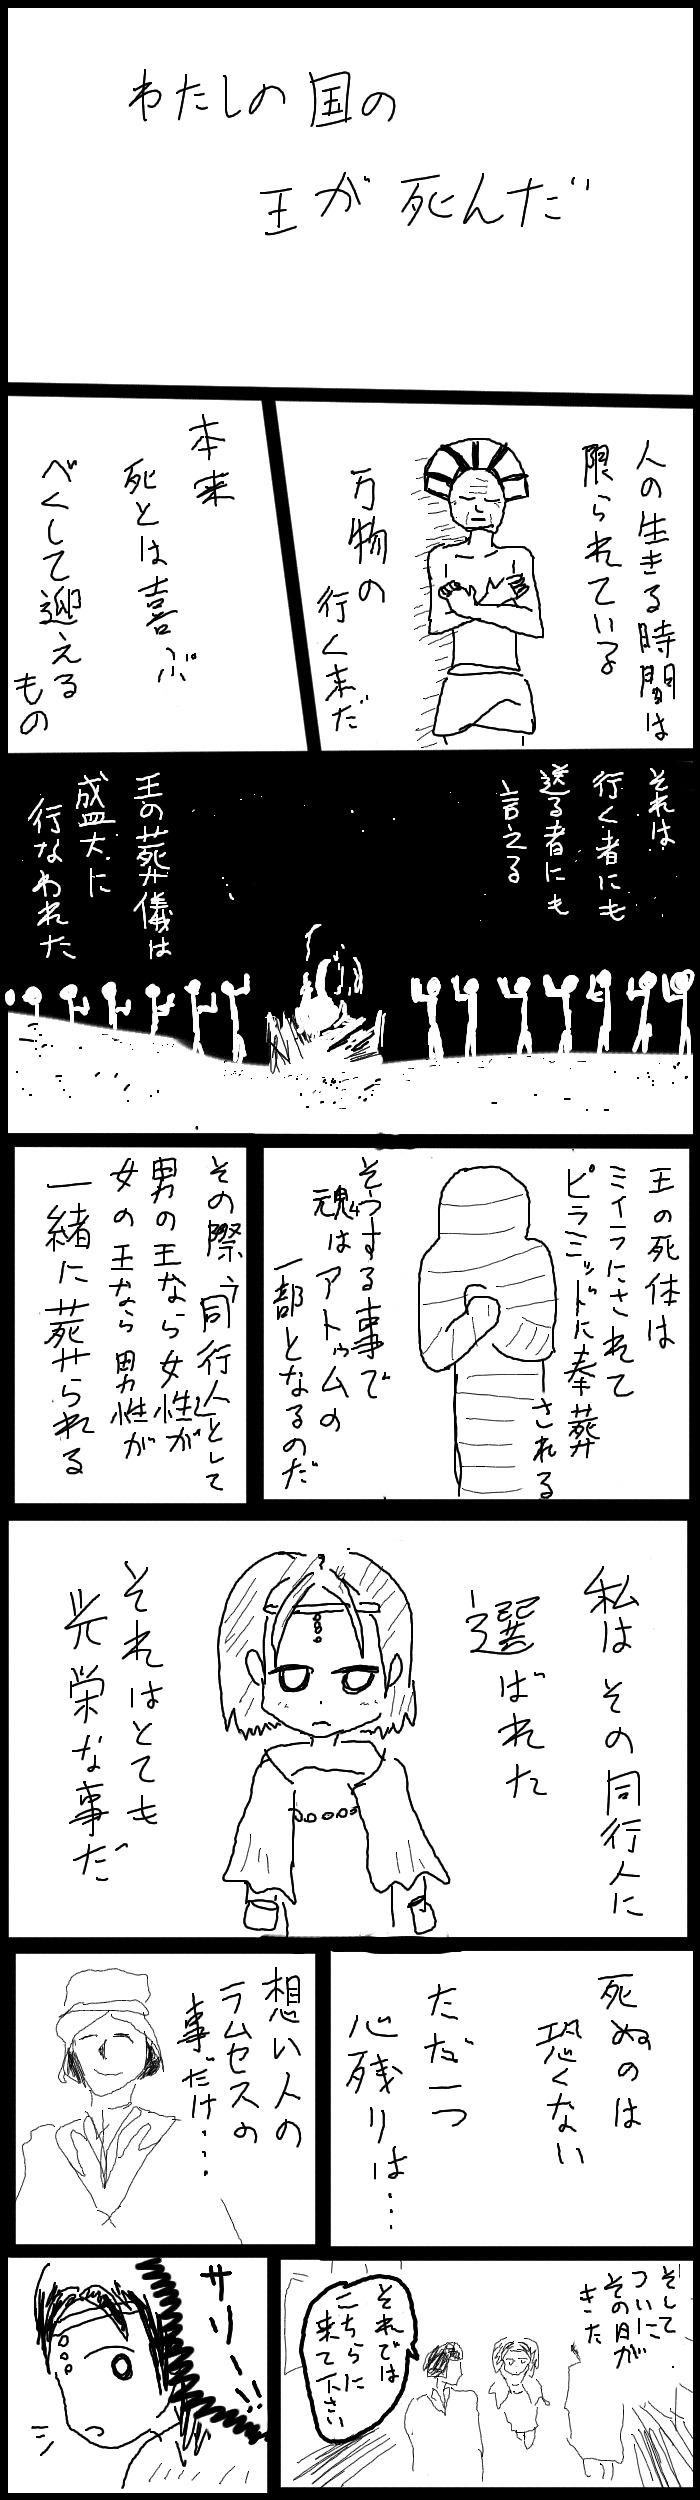 わたしの国の
王が死んだ
人の生きる時間は
限られている
万物の
行く末だ
本来
死とは喜ぶ
べくして迎える
もの
それは
行く者にも
送る者にも
言える
王の葬儀は
盛大に
行なわれた
王の死体は
ミイラにされて
ピラミッドに奉葬
される
そうする事で
魂は
アトゥムの
一部となるのだ
その際、同行人として
男の王なら女性が
女の王なら男性が
一緒に葬られる
私はその同行人に
選ばれた
それはとても
光栄な事だ
死ぬのは
恐くない
ただ一つ
心残りは…
想い人の
ラムセスの
事だけ…
そして
ついに
その日が
きた
それでは
こちらに
来て下さい
サリー!!